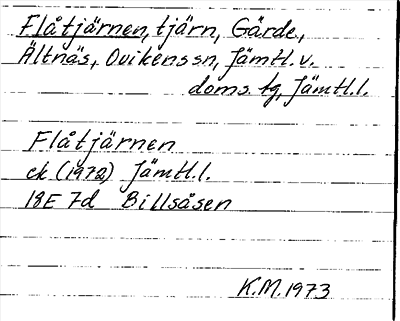 Flåtjärnen, tjärn, Gärde,
Ältnäs, Ovikens sn, Jämtl. v.
doms. tg, Jämtl. l.
Flåtjärnen
ek (1972) Jämtl. l.
18E 7d Billsåsen
K.M. 1973